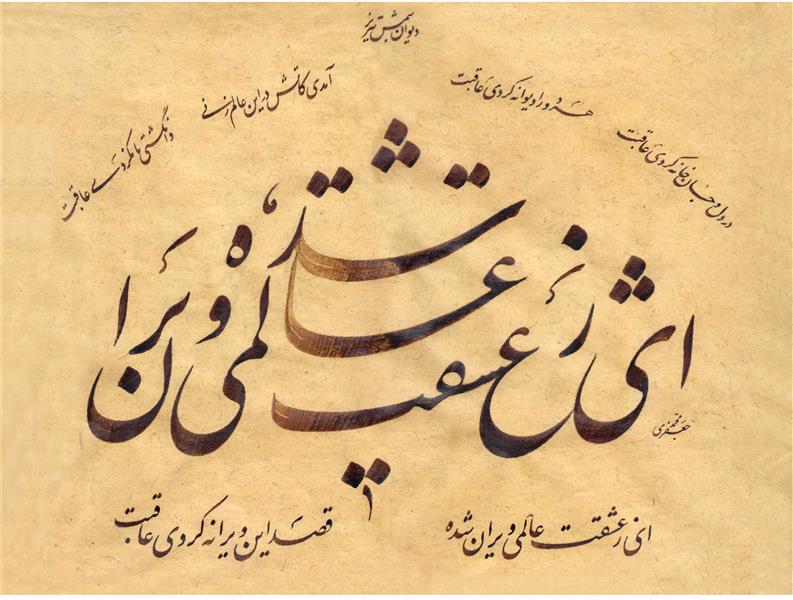 دیوان شمس تبریز
در دل و جان خانه کردی عاقبت
هر دو را دیوانه کردی عاقبت
آمدی کاتش در این عالم زنی
وانگشتی تا نکردی عاقبت
ای ز عشقت عالمی ویران شده
ای ز عشقت عالمی ویران شده
قصد این ویرانه کردی عاقبت